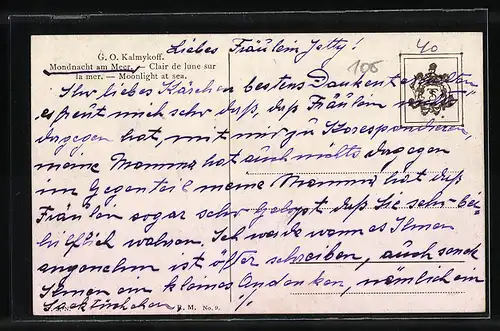 G. O. Kalmykoff.
Mondnacht am Meer. — Clair de lune sur
la mer. — Moonlight at sea.
Liebes Fräulein Jetty!
106
40
Ihr liebes Kärtchen bestens Dankend erhalten
es freut mich sehr daß, daß Fräulein nichts
dagegen hat, mit mir zu Korespondieren,
meine Mamma hat auch nichts dagegen
im Gegenteil meine Mamma hat daß
Fräulein sogar sehr gelobt daß Sie sehr be-
hilflich waren. Ich werde wenn es Ihnen
angenehm ist öfter schreiben, auch sende
Ihnen ein kleines Andenken, nämlich ein
B. M. No. 9.